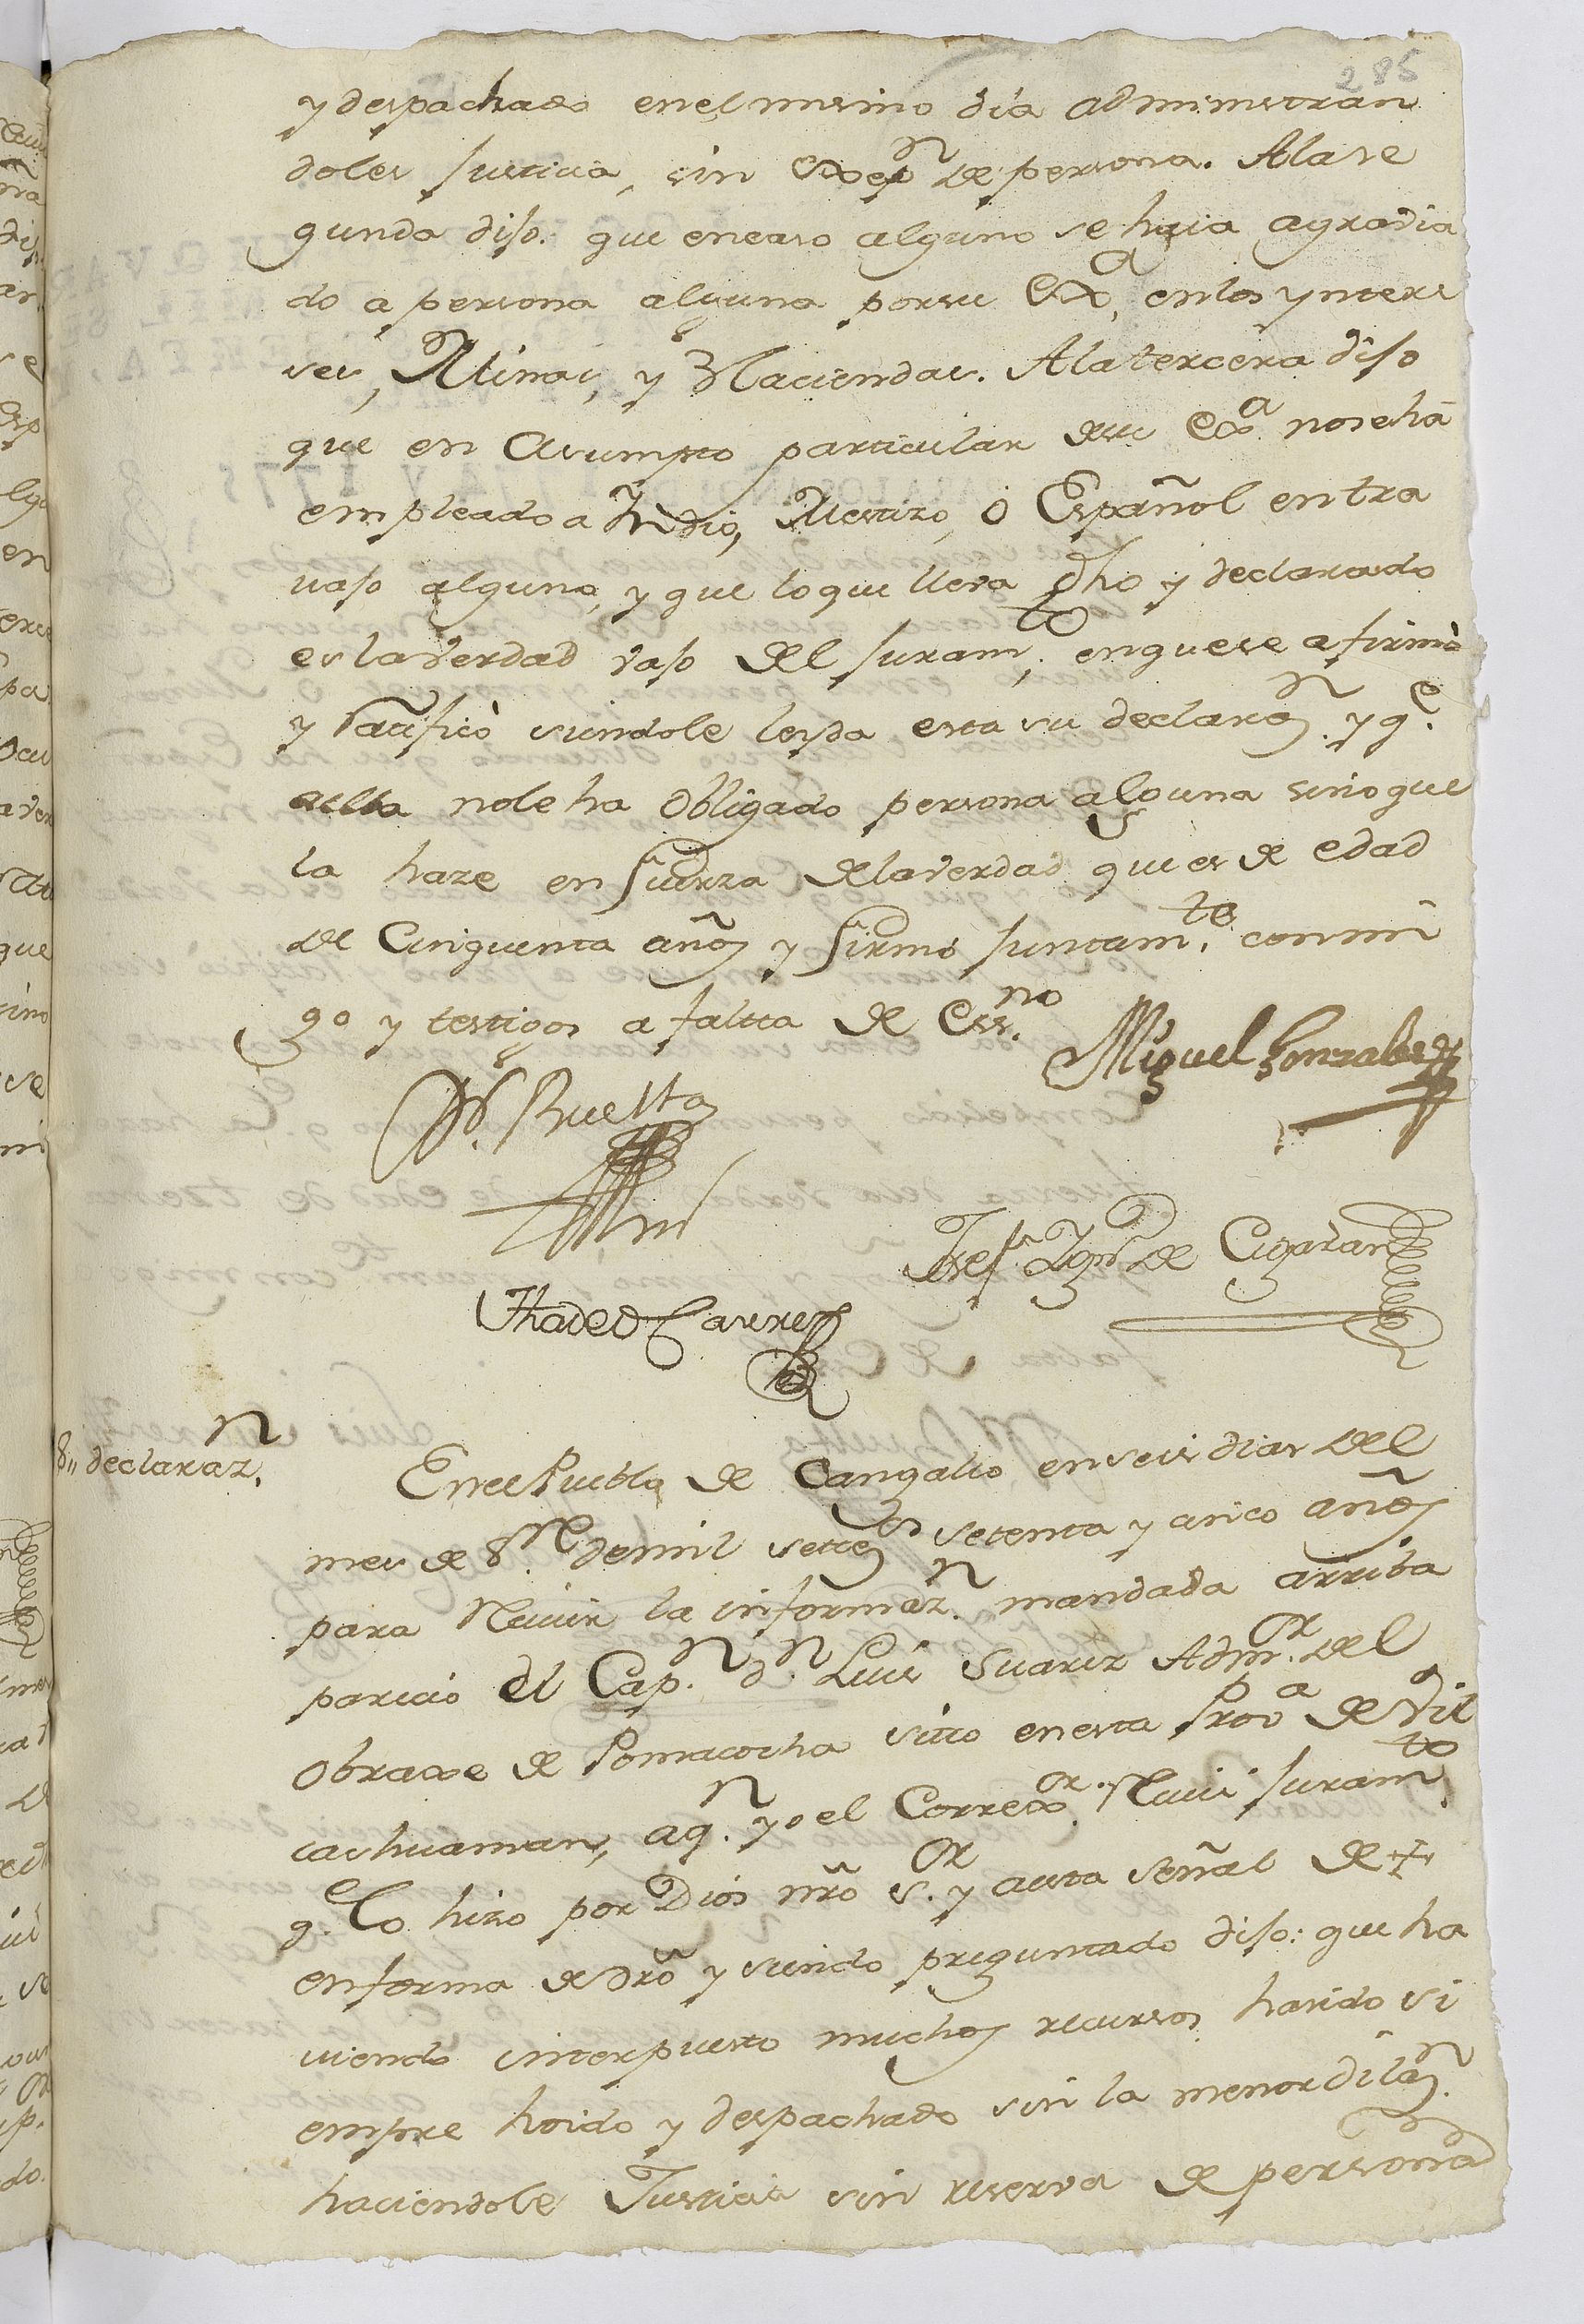 285
y despachado en el mismo dia administran
doles justicia, sin exepn. de persona. Ala se
gunda dijo. que encaso alguno se haia agravia
do a persona alguna porsu Exa, enlos yntere
ses, Minas, y Haciendas. Alatercera dijo
que en asumpto particular desu Exa. nosehà
empleado a Yndio, Mestizo, ò Español entra
vajo alguno, y que loque lleva dho y declarado
es laverdad vajo del juramto. enquese afirmò
y ratificò siendole leyda esta su declaron. y qe.
a ella nole ha obligado persona alguna sinoque
la haze en fuerza delaverdad que es de edad
de Cinquenta años y firmò juntamte. conmi
go y testigos a falta de Essno.
Miguel Gonzales
Ruelta
Josef Ign. de Cigaran
Thadeo Carrer
8,, declarazn.
Enel Pueblo de Cangallo enseis dias del
mes de 8re. demil setecs setenta y cinco años
para Recivir la informazn. mandada arriba
parecio el Capn. dn. Luis Suarez Admor. del
Obraxe de Pomacocha sitto enesta Proa de Vil
cashuaman, aqn. yo el Correxor. Recivi juramto.
qe. lo hizo por Dios nro Sor. y auna señal de +
enforma de dro y siendo preguntado dijo: que ha
viendo interpuesto muchos recursos hasido si
empre hoido y despachado sin la menor dilan.
haciendole Justicia sin reserva de persona